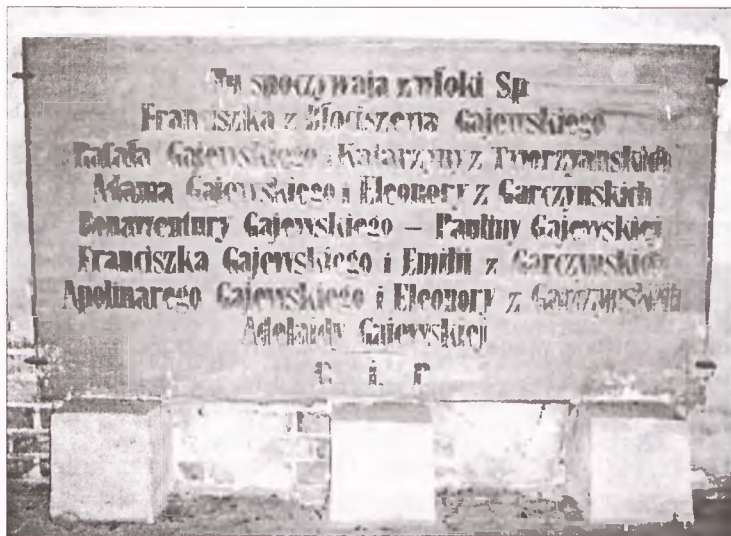 Tu spoczywają zwłoki Sp
Franciszka z Błociszewa Gajewskiego
Rafała Gajewskiego i Katarzyny z Tworzyanskich
Adama Gajewskiego i Eleonory z Garczynskich
Bonawentury Gajewskiego – Pauliny Gajewskiej
Franciszka Gajewskiego i Emilii z Garczynskich
Apolinarego Gajewskiego i Eleonory z Garczynskich
Adelaidy Gajewskiej